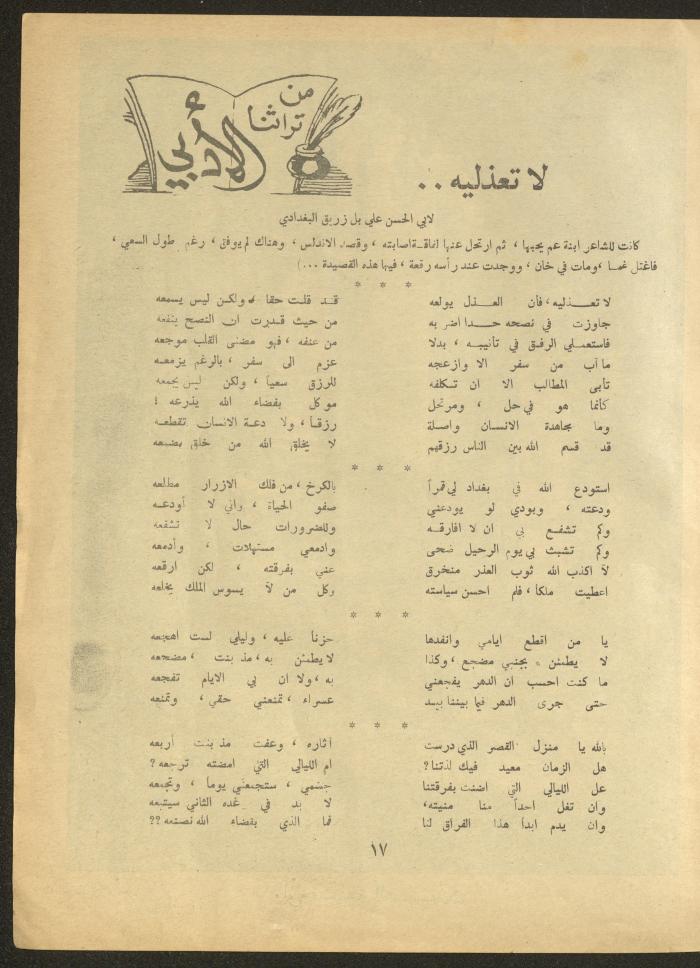 من
تراثنا
الأدبي
لا تعذليه . .
لابي الحسن علي بل زريق البغدادي
كانت للشاعر ابنة عم يحبها ، ثم ارتحل عنها لفاقة اصابته ، وقصد الاندلس ، وهناك لم يوفق ، رغم طول السعي ،
فاغتل غما ، ومات في خان ، ووجدت عند رأسه رقعة ، فيها هذه القصيدة ...)
* * *
لا تعـذليه ، فأن العـذل يولعه قـد قلت حقا ، ولكـن ليس يسمعه
جاوزت في نصحه حـدا اضر به من حيث قـدرت ان النصح ينفعه
فاستعملي الرفـق في تأنيبـه ، بدلا من عنفه ، فهو مضنى القلب موجعه
ما آب من سفر الا وازعجه عزم الى سفر ، بالرغم يزمعـه
تأبى المطالب الا ان تتكلفه للرزق سعياً ، ولكن ليس يجمعه
كأنما هو في حل ، ومرتحل موكل بفضاء الله يذرعه !
وما مجاهدة الانسان واصلة رزقـاً ، ولا دعـة الانسان تقطعـه
قد قسم الله بين الناس رزقهم لا يخلق الله من خلق يضيعه
* * *
استودع الله في بغداد لي قمراً بالكرخ ، من فلك الازرار مطلعه
ودعته ، وبودي لو يودعني صفو الحياة ، واني لا أودعـه
وكم تشفـع بي ان لا افارقـه وللضرورات حال لا تشفعه
وكم تشبث بي يوم الرحيل ضحى وادمعي مستهلات ، وأدمعه
لا اكذب الله ثوب العذر منخرق عني بفرقته ، لكن ارقعه
اعطيت ملكاً ، فلم احسن سياسته وكل من لا يسوس الملك يخلعه
* * *
يا من اقطع ايامي وانفدها حزناً عليه ، وليلي لست اهجعه
لا يطمئن بجنبي مضجع ، وكذا لا يطمئن به ، مذ بنت ، مضجعه
ما كنت احسب ان الدهر يفجعني به ، ولا ان بي الايام تفجعه
حتى جرى الدهر فيما بيننا بيد عسراء ، تمنعني حقي ، وتمنعه
* * *
بالله يا منزل القصر الذي درست آثاره ، وعفت مذ بنت أربعه
هل الزمان معيد فيك لذتنا ؟ ام الليالي التي امضته ترجعه ؟
عل الليالي التي اضنت بفرقتنا جسمي ، ستجمعني يوماً ، وتجمعه
وان تغل احداً منا منيته، لا بد في غده الثاني سيتبعه
وان يدم ابدا هذا الفراق لنا فما الذي بقضاء الله نصنعه ؟؟
١٧